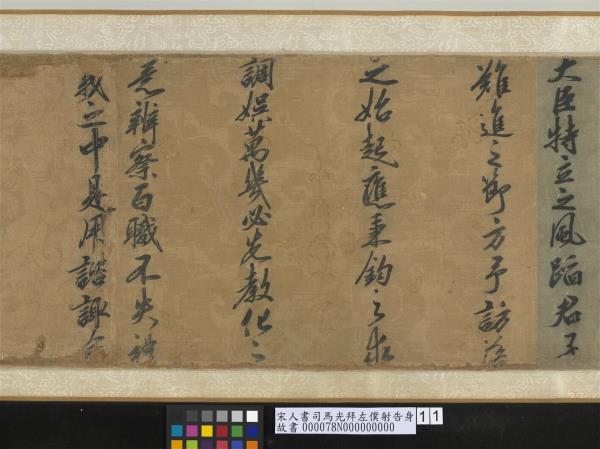 大臣特立之風蹈君子
難進之節方予訪落
之始起應秉鈞之求
調娛萬幾必先教化之
意辯察百職不失禮
我之中是用諮諏公
宋人書司馬光拜左僕射告身
故書 000078N000000000
11